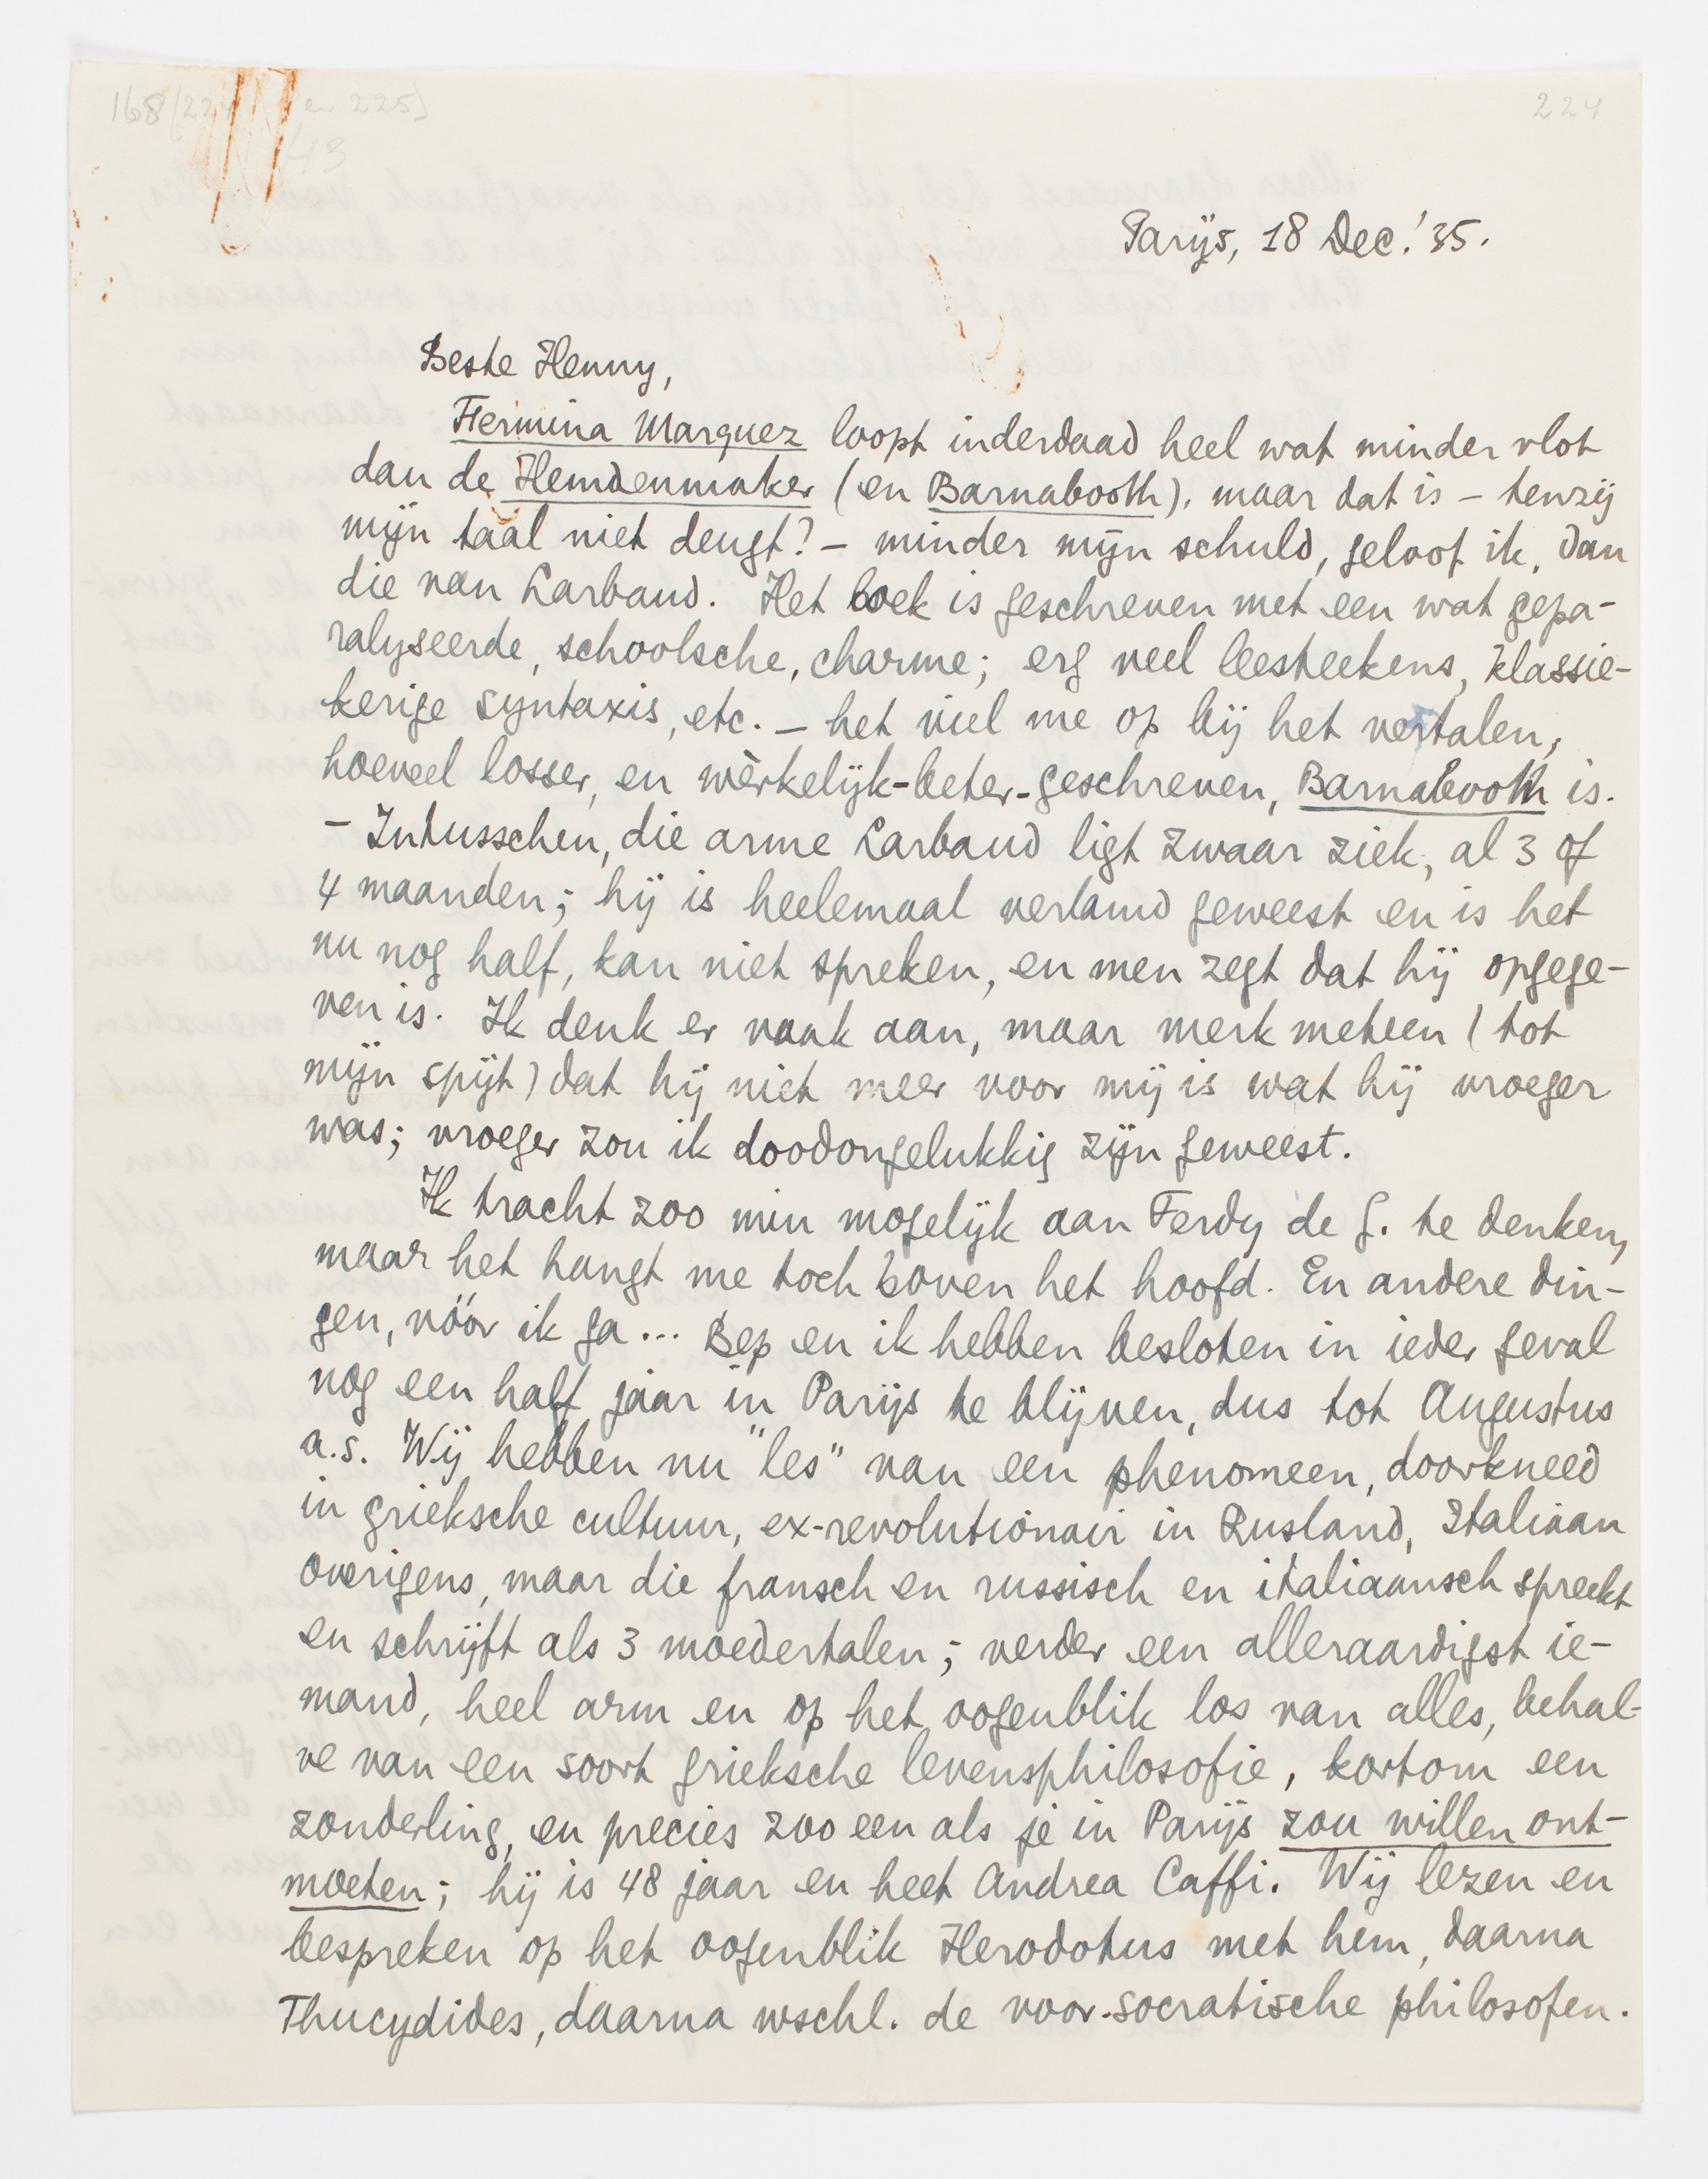 168 (224 en 225)
43
224
Parijs, 18 Dec. '35.
Beste Henny,
Fermina Marquez loopt inderdaad heel wat minder vlot
dan de Hemdenmaker (en Barnabooth), maar dat is – tenzij
mijn taal niet deugt? – minder mijn schuld, geloof ik, dan
die van Larbaud. Het boek is geschreven met een wat gepa-
ralyseerde, schoolsche, charme; erg veel leesteekens, klassie-
kerige syntaxis, etc. – het viel me op bij het vertalen,
hoeveel losser, en wèrkelijk-beter-geschreven, Barnabooth is.
– Intusschen, die arme Larbaud ligt zwaar ziek, al 3 of
4 maanden; hij is heelemaal verlamd geweest en is het
nu nog half, kan niet spreken, en men zegt dat hij opgege-
ven is. Ik denk er vaak aan, maar merk meteen (tot
mijn spijt) dat hij niet meer voor mij is wat hij vroeger
was; vroeger zou ik doodongelukkig zijn geweest.
Ik tracht zoo min mogelijk aan Ferdy de G. te denken,
maar het hangt me toch boven het hoofd. En andere din-
gen, vóór ik ga... Bep en ik hebben besloten in ieder geval
nog een half jaar in Parijs te blijven, dus tot Augustus
a.s. Wij hebben nu "les" van een phenomeen, doorkneed
in grieksche cultuur, ex-revolutionair in Rusland, Italiaan
overigens, maar die fransch en russisch en italiaansch spreekt
en schrijft als 3 moedertalen; verder een alleraardigst ie-
mand, heel arm en op het oogenblik los van alles, behal-
ve van een soort grieksche levensphilosofie, kortom een
zonderling, en precies zoo een als je in Parijs zou willen ont-
moeten; hij is 48 jaar en heet Andrea Caffi. Wij lezen en
bespreken op het oogenblik Herodotus met hem, daarna
Thucydides, daarna wschl. de voor-socratische philosofen.